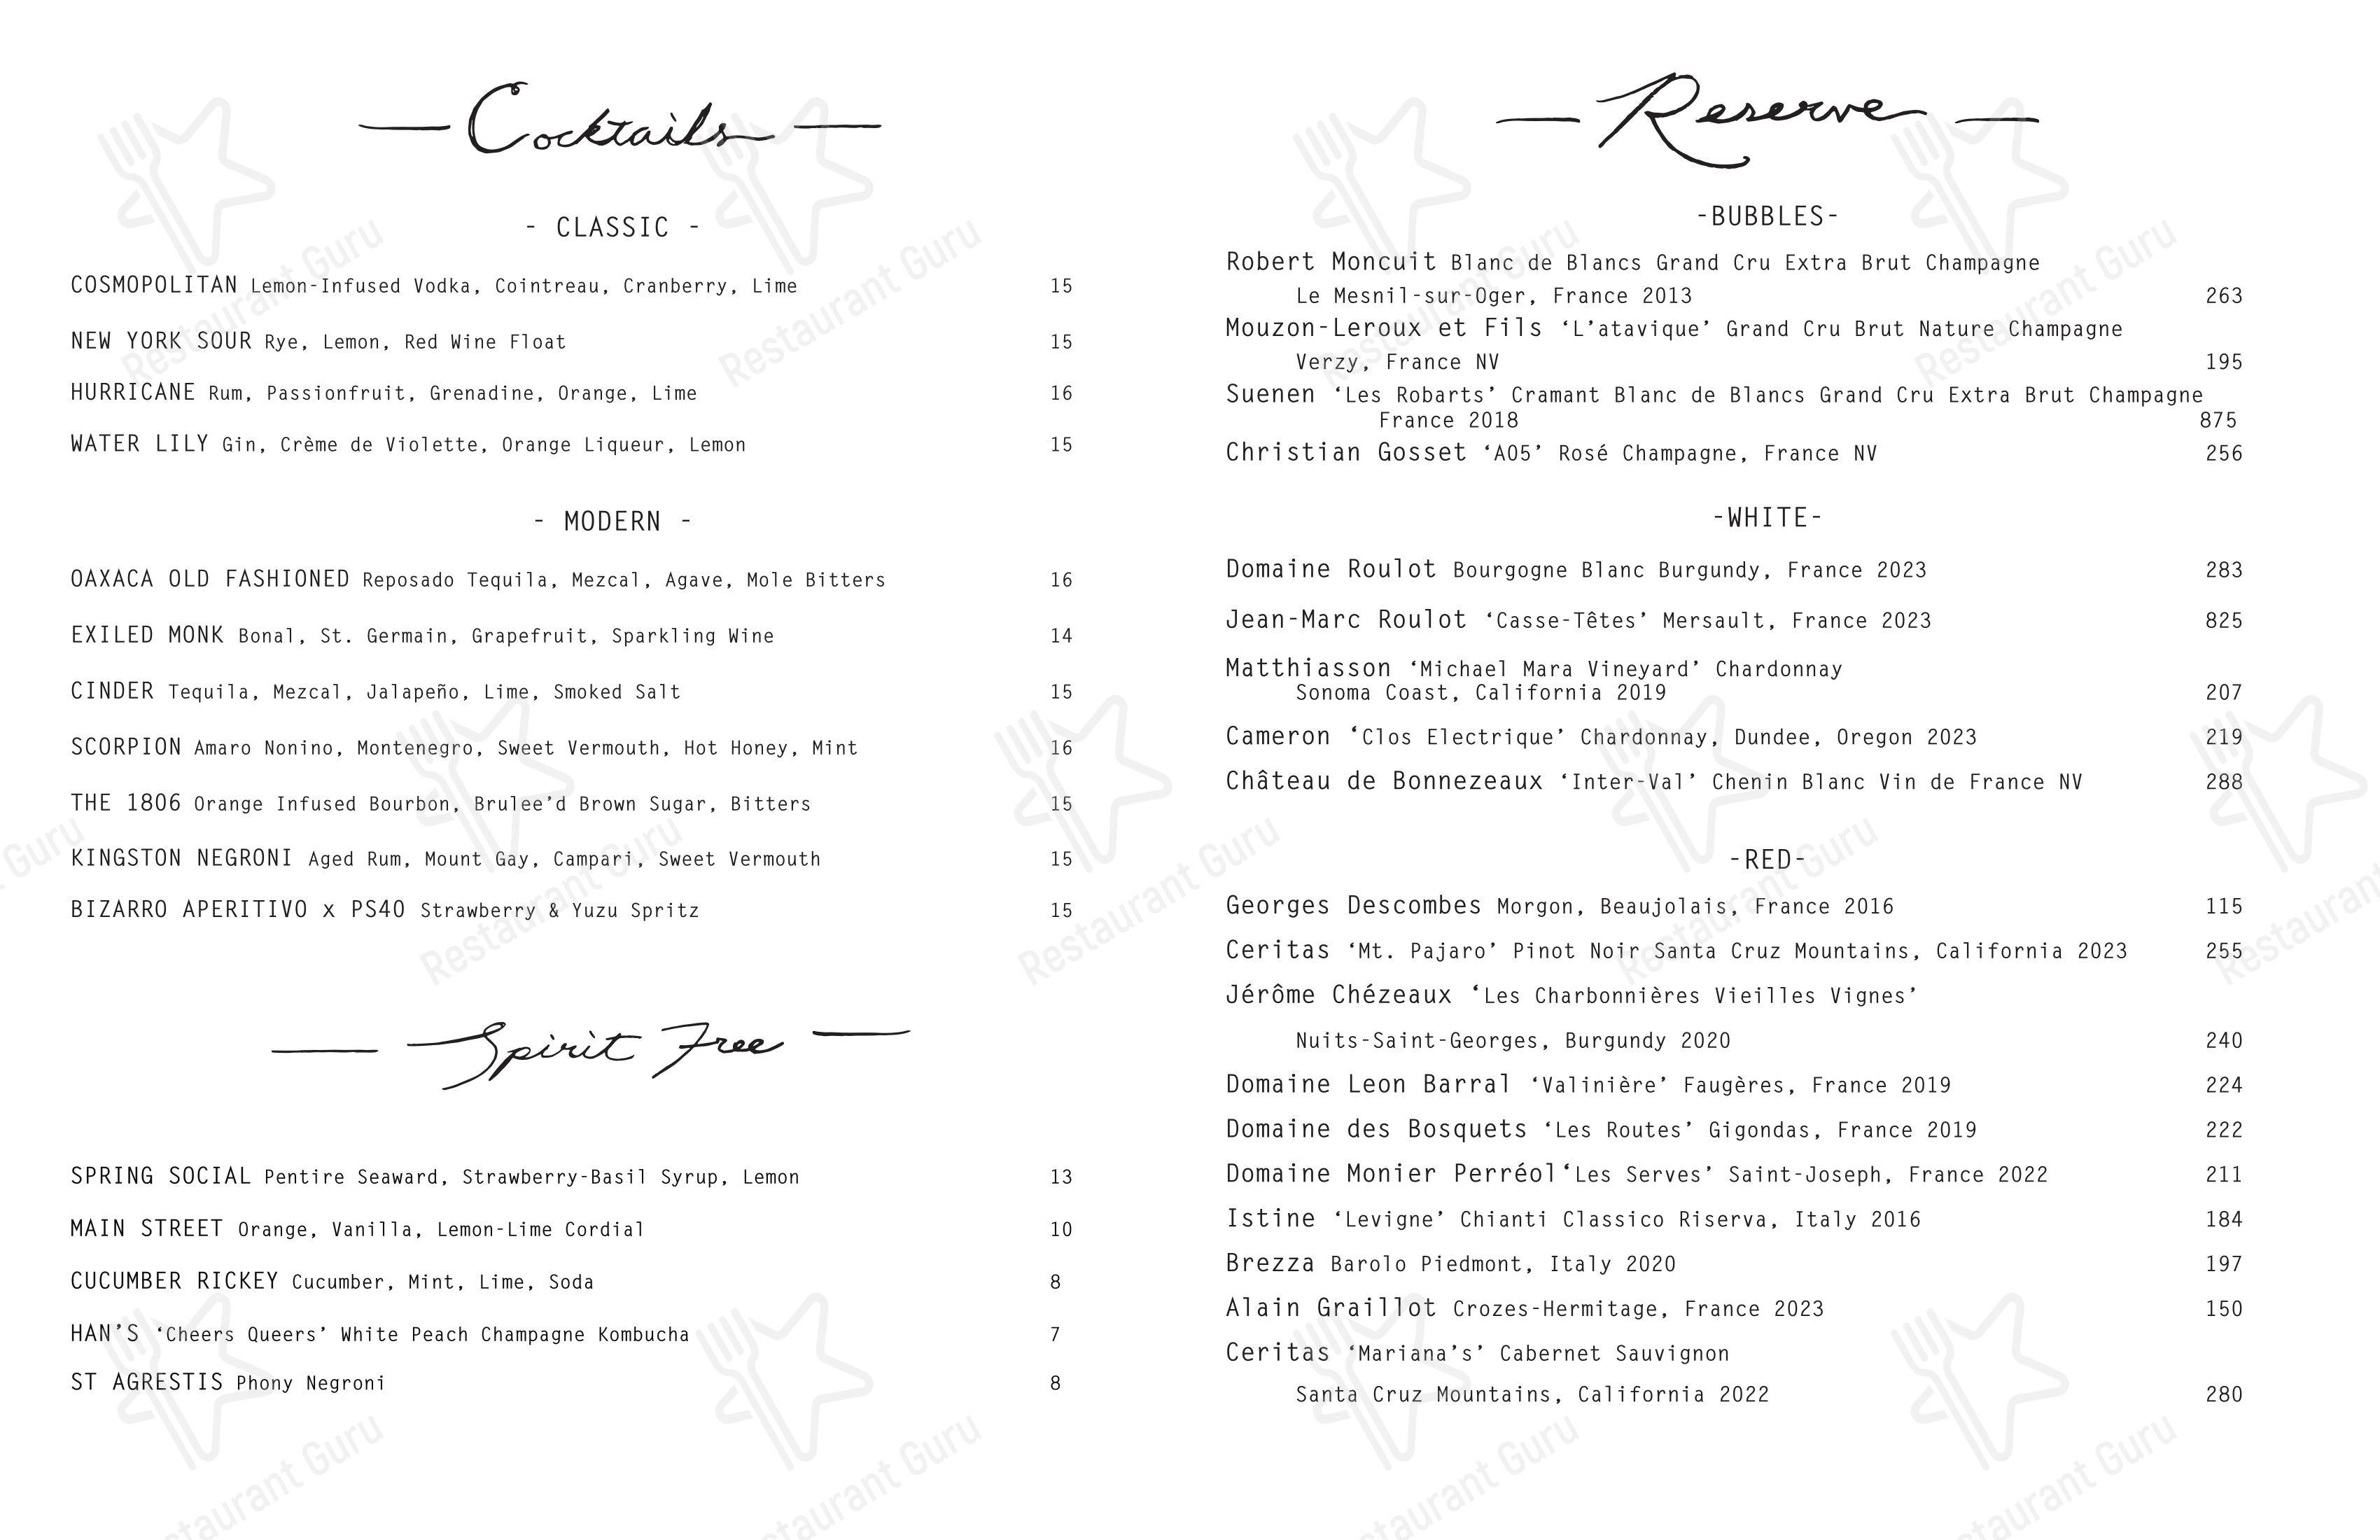 Cocktails
- CLASSIC -
COSMOPOLITAN Lemon-Infused Vodka, Cointreau, Cranberry, Lime 15
NEW YORK SOUR Rye, Lemon, Red Wine Float 15
HURRICANE Rum, Passionfruit, Grenadine, Orange, Lime 16
WATER LILY Gin, Crème de Violette, Orange Liqueur, Lemon 15
- MODERN -
OAXACA OLD FASHIONED Reposado Tequila, Mezcal, Agave, Mole Bitters 16
EXILED MONK Bonal, St. Germain, Grapefruit, Sparkling Wine 14
CINDER Tequila, Mezcal, Jalapeño, Lime, Smoked Salt 15
SCORPION Amaro Nonino, Montenegro, Sweet Vermouth, Hot Honey, Mint 16
THE 1806 Orange Infused Bourbon, Brulee’d Brown Sugar, Bitters 15
KINGSTON NEGRONI Aged Rum, Mount Gay, Campari, Sweet Vermouth 15
BIZARRO APERITIVO x PS40 Strawberry & Yuzu Spritz 15
Spirit Free
SPRING SOCIAL Pentire Seaward, Strawberry-Basil Syrup, Lemon 13
MAIN STREET Orange, Vanilla, Lemon-Lime Cordial 10
CUCUMBER RICKEY Cucumber, Mint, Lime, Soda 8
HAN’S ‘Cheers Queers’ White Peach Champagne Kombucha 7
ST AGRESTIS Phony Negroni 8
Reserve
-BUBBLES-
Robert Moncuit Blanc de Blancs Grand Cru Extra Brut Champagne
Le Mesnil-sur-Oger, France 2013 263
Mouzon-Leroux et Fils ‘L’atavique’ Grand Cru Brut Nature Champagne
Verzy, France NV 195
Suenen ‘Les Robarts’ Cramant Blanc de Blancs Grand Cru Extra Brut Champagne
France 2018 875
Christian Gosset ‘A05’ Rosé Champagne, France NV 256
-WHITE-
Domaine Roulot Bourgogne Blanc Burgundy, France 2023 283
Jean-Marc Roulot ‘Casse-Têtes’ Mersault, France 2023 825
Matthiasson ‘Michael Mara Vineyard’ Chardonnay
Sonoma Coast, California 2019 207
Cameron ‘Clos Electrique’ Chardonnay, Dundee, Oregon 2023 219
Château de Bonnezeaux ‘Inter-Val’ Chenin Blanc Vin de France NV 288
-RED-
Georges Descombes Morgon, Beaujolais, France 2016 115
Ceritas ‘Mt. Pajaro’ Pinot Noir Santa Cruz Mountains, California 2023 255
Jérôme Chézeaux ‘Les Charbonnières Vieilles Vignes’
Nuits-Saint-Georges, Burgundy 2020 240
Domaine Leon Barral ‘Valinière’ Faugères, France 2019 224
Domaine des Bosquets ‘Les Routes’ Gigondas, France 2019 222
Domaine Monier Perréol‘Les Serves’ Saint-Joseph, France 2022 211
Istine ‘Levigne’ Chianti Classico Riserva, Italy 2016 184
Brezza Barolo Piedmont, Italy 2020 197
Alain Graillot Crozes-Hermitage, France 2023 150
Ceritas ‘Mariana’s’ Cabernet Sauvignon
Santa Cruz Mountains, California 2022 280
Restaurant Guru